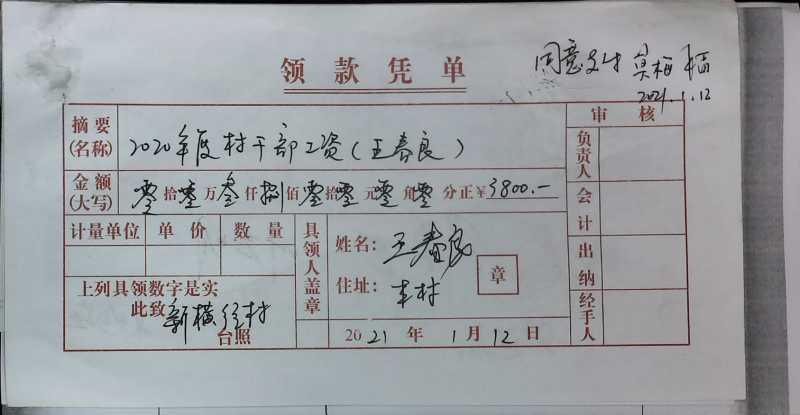 领款凭单
同意支付
2021.1.12
摘要(名称) 2020年度村干部工资(王春良)
审核
金额(大写) 零拾零万叁仟捌佰零拾零元零角零分正¥3800.-
负责人
会计
出纳
经手人
计量单位 单价 数量
具领人盖章
姓名:王春良
住址:本村
章
上列具领数字是实
此致 新横径村
台照
2021年1月12日